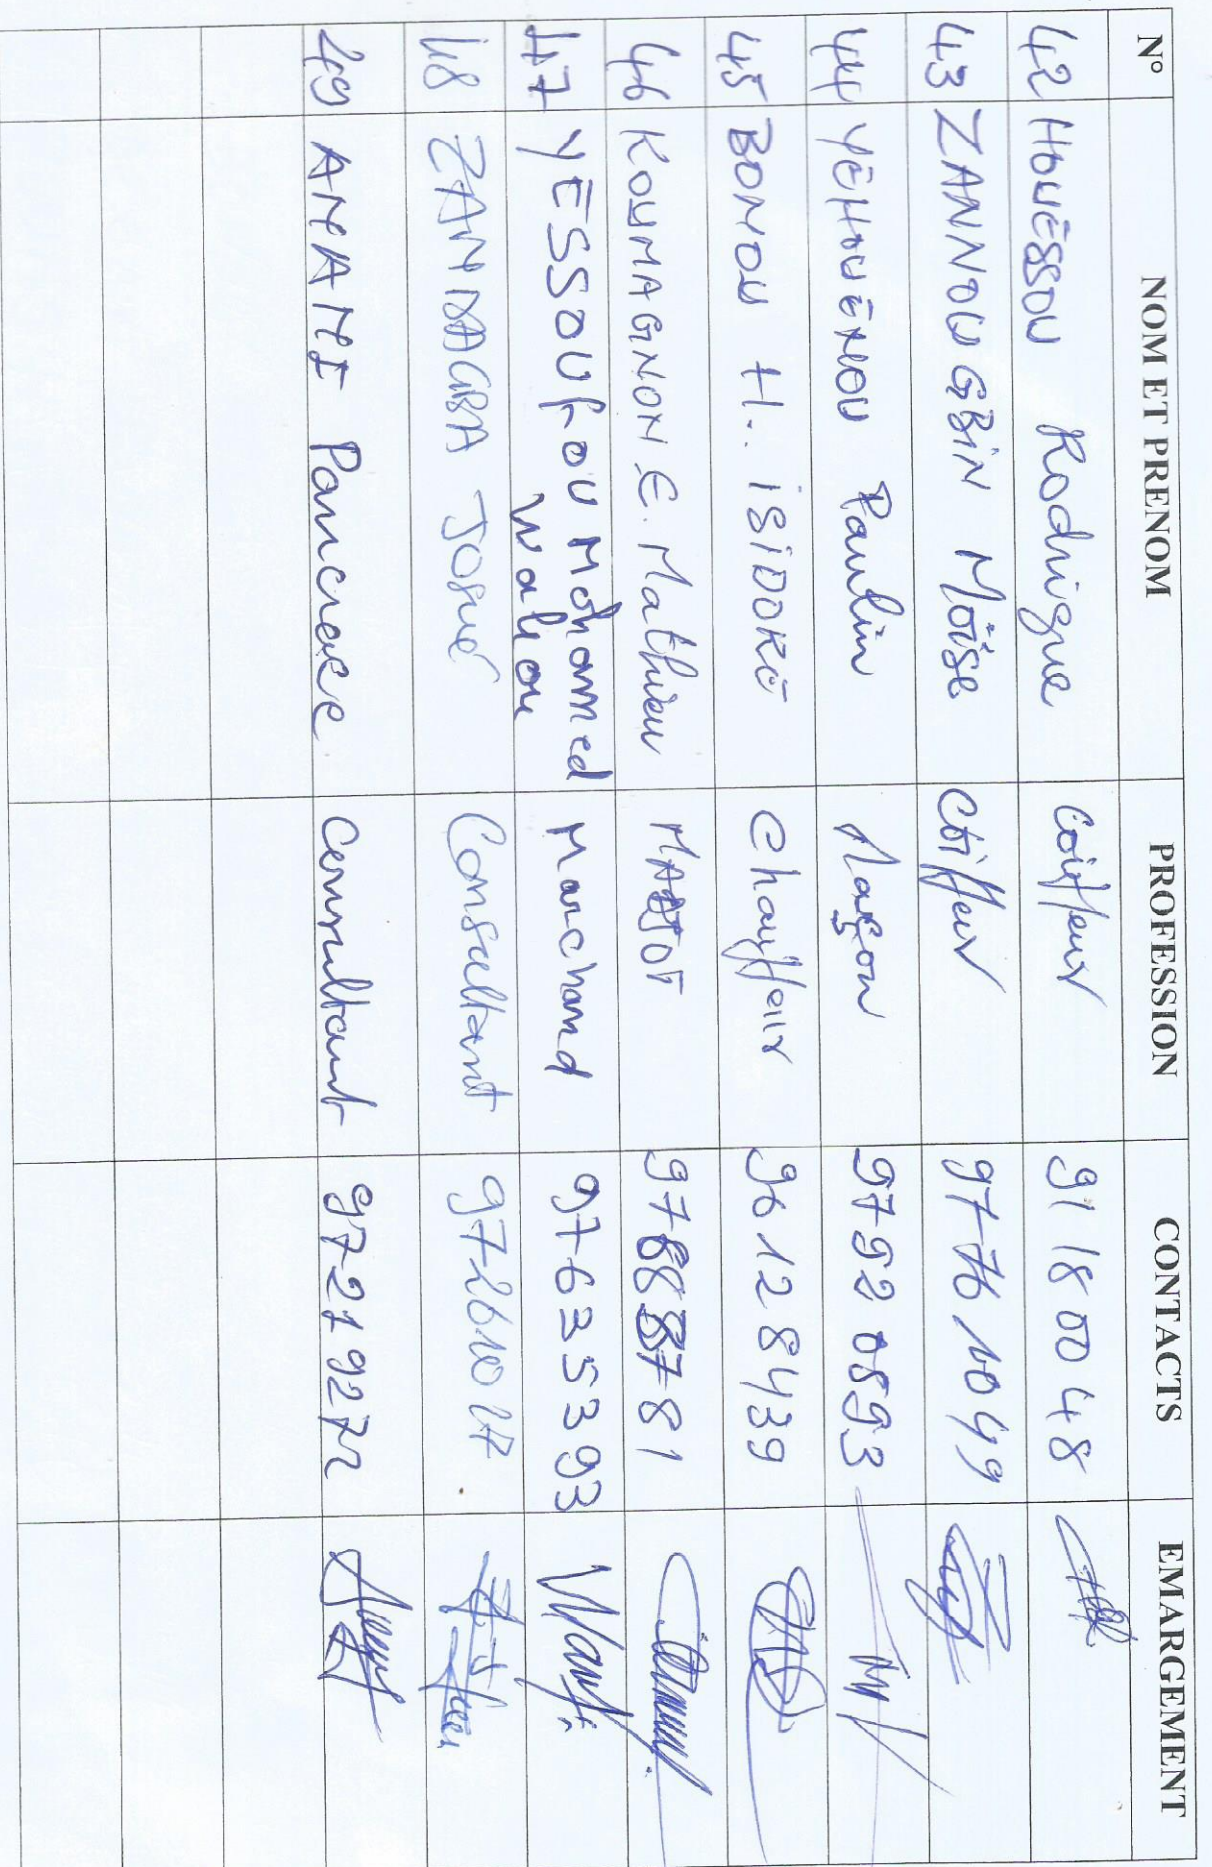 N° NOM ET PRENOM PROFESSION CONTACTS EMARGEMENT
42 HOUÉSSOU Rodrigue Coiffeur 91 18 00 48
43 ZANNOU GBIN Moïse Coiffeur 97 76 10 49
44 YÉHOUÉNOU Paulin Maçon 97 92 08 93
45 BONOU H.. iSiDORE Chauffeur 96 12 84 39
46 KOUMAGNON E. Mathieu 81
47 YESSOUFOU Mohammed Marchand 97 63 53 93
48 ZANDAGBA Josué Consultant 97261017
49 AMANI Pancrace Consultant